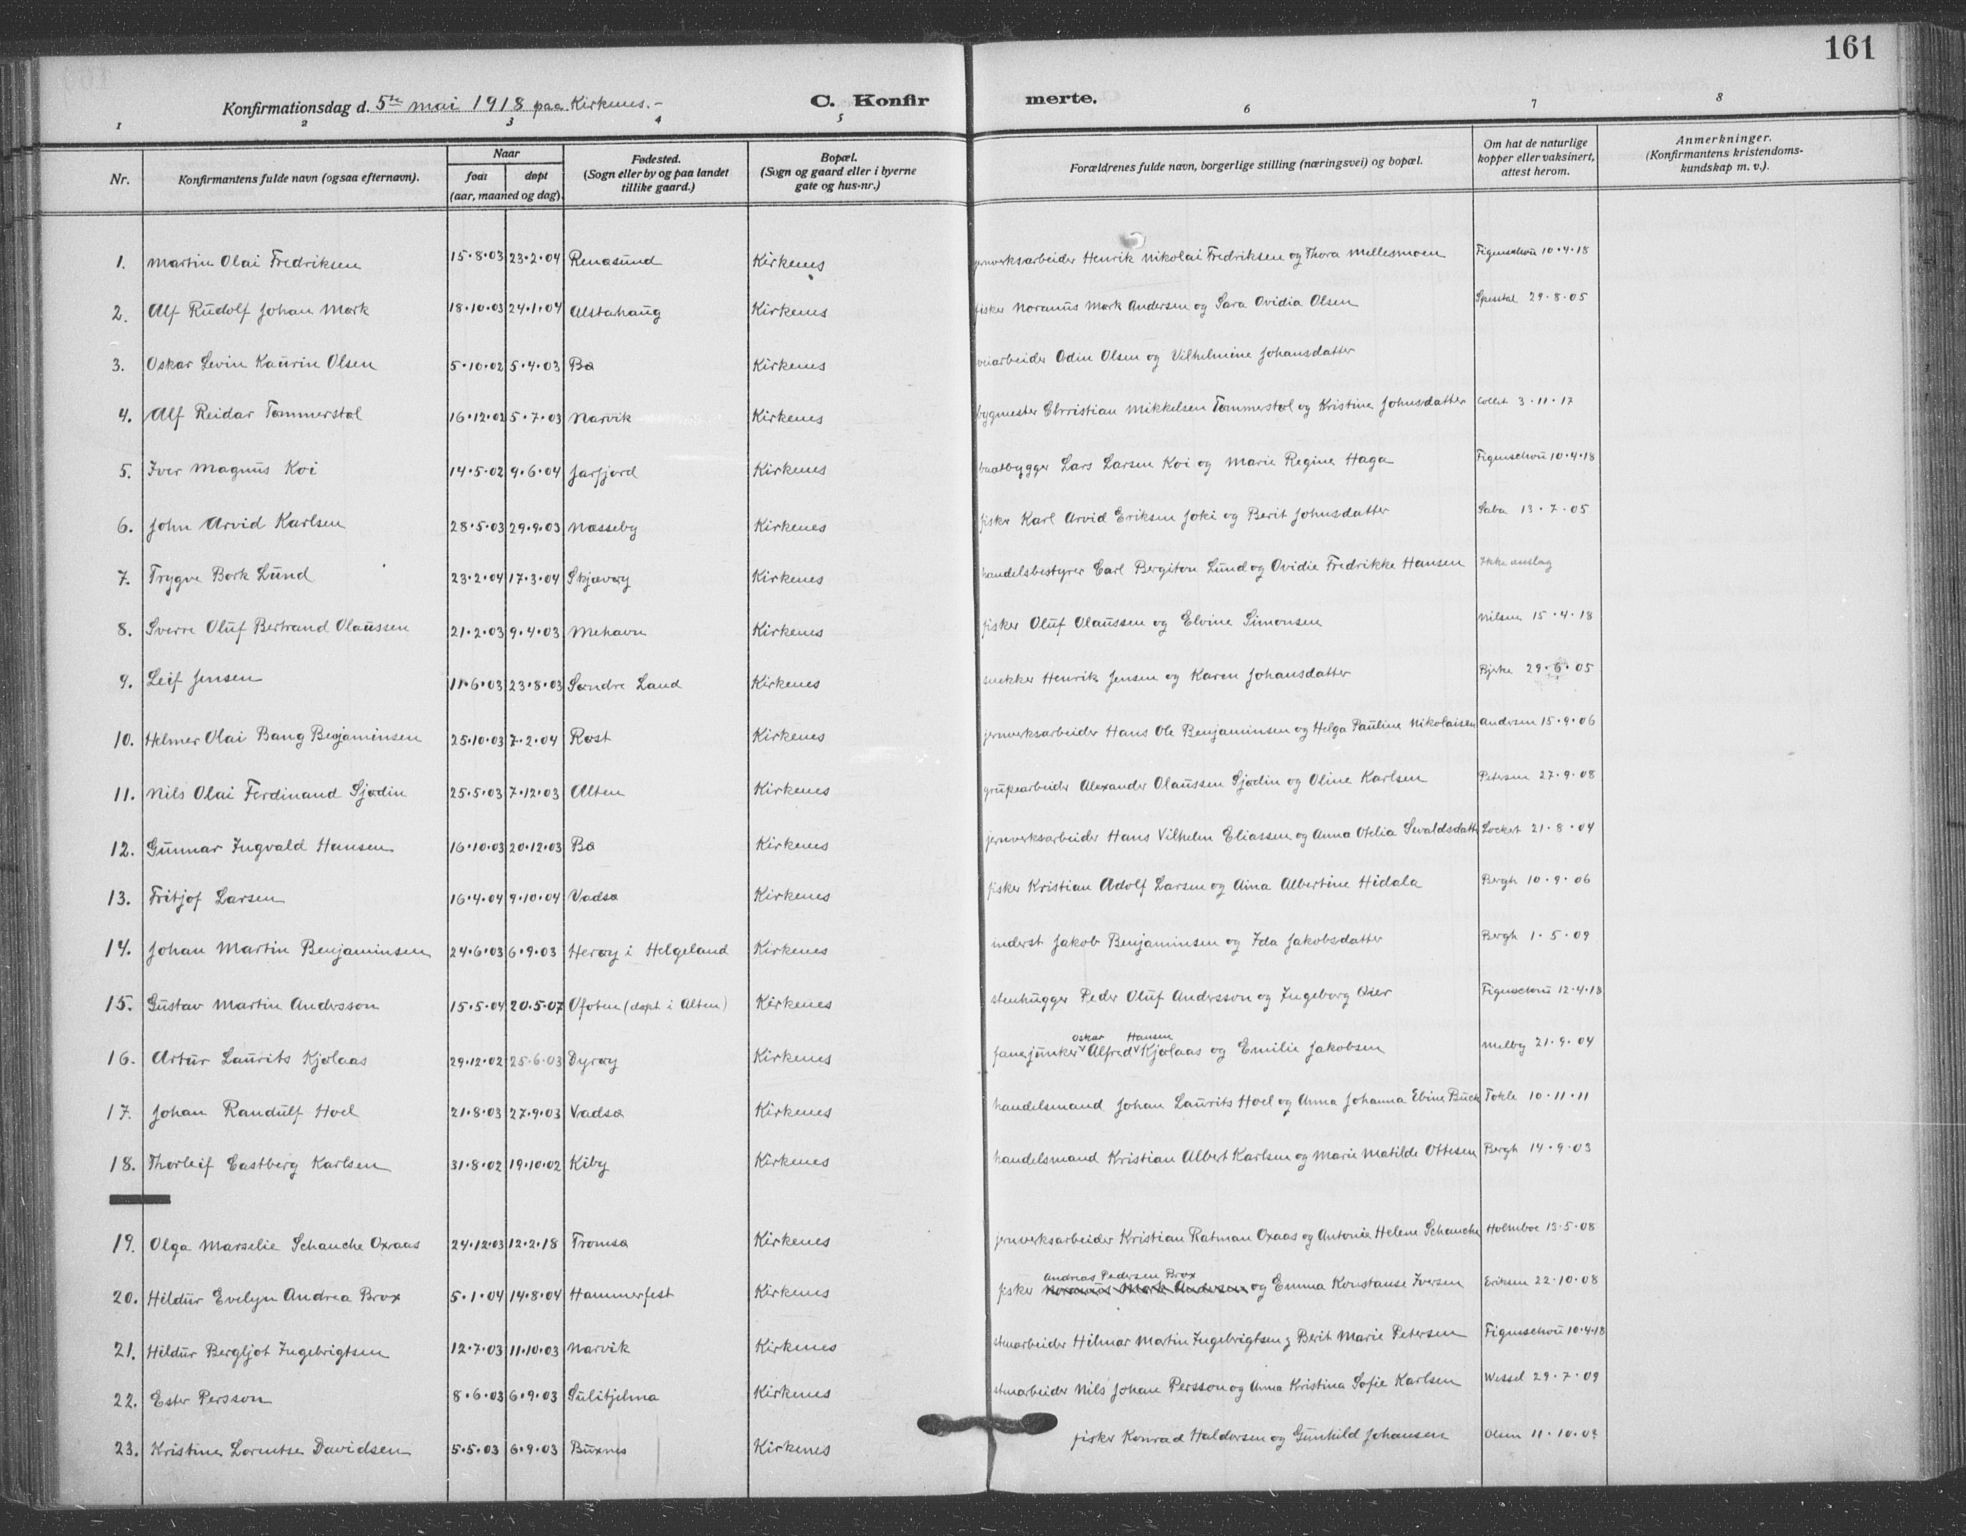 161
Konfirmationsdag d. 5te mai 1918 paa Kirkenes.-
C. Konfirmerte.
1 2 3 4 5 6 7 8
Nr. Konfirmantens fulde navn (ogsaa efternavn). Naar født døpt (aar, maaned og dag). Fødested. (Sogn eller by og paa landet tillike gaard.) Bopæl. (Sogn og gaard eller i byerne gate og hus-nr.) Forældrenes fulde navn, borgerlige stilling (næringsvei) og bopæl. Om hat de naturlige kopper eller vaksinert, attest herom. Anmerkninger. (Konfirmantens kristendoms-kundskap m. v.).
1. Martin Olai Fredriksen 15·8·03 23·2·04 Renøsund Kirkenes jernverksarbeider Henrik Nikolai Fredriksen og Thora Mellesmoen Figenschou 10·4·18
2. Alf Rudolf Johan Mørk 18·10·03 24·1·04 Alstahaug Kirkenes fisker Noranus Mørk Andersen og Sara Ovidia Olsen 29·8·05
3. Oskar Levin Kaurin Olsen 5·10·02 5·4·03 Bø Kirkenes veiarbeider Odin Olsen og Vilhelmine Johansdatter
4. Alf Reidar Tømmerstøl 16·12·02 5·7·03 Narvik Kirkenes bygmester Christian Mikkelsen Tømmerstøl og Kristine Johnsdatter Collet 3·11·17
5. Iver Magnus Koi 14·5·02 9·6·04 Jarfjord Kirkenes baatbygger Lars Larsen Koi og Marie Regine Haga Figenschou 10·4·18
6. John Arvid Karlsen 28·5·03 29·9·03 Næsseby Kirkenes fisker Karl Arvid Eriksen Joki og Berit Johnsdatter Saba 13·7·05
7. Trygve Bork Lund 23·2·04 17·3·04 Skjærvøy Kirkenes handelsbestyrer Carl Bergiton Lund og Ovidie Fredrikke Hansen Ikke anslag
8. Sverre Oluf Bertrand Olaussen 21·2·03 9·4·03 Mehavn Kirkenes fisker Oluf Olaussen og Elvine Simonsen Nilsen 15·4·18
9. Leif Jensen 11·6·03 23·8·03 Søndre Land Kirkenes snekker Henrik Jensen og Karen Johansdatter Bjerke 29·6·05
10. Helmer Olai Bang Benjaminsen 25·10·03 7·2·04 Røst Kirkenes jernverksarbeider Hans Ole Benjaminsen og Helga Pauline Nikolaisen Andersen 15·9·06
11. Nils Olai Ferdinand Sjødin 25·5·03 7·12·03 Alten Kirkenes grupearbeider Alexander Olaussen Sjødin og Oline Karlsen Petersen 27·9·08
12. Gunnar Ingvald Hansen 16·10·03 20·12·03 Bø Kirkenes jernverksarbeider Hans Vilhelm Eliassen og Anna Otelia Sevaldsdatt. Lockert 21·8·04
13. Fritjof Larsen 16·4·04 9·10·04 Vadsø Kirkenes fisker Kristian Adolf Larsen og Aina Albertine Hidala Bergh 10·9·06
14. Johan Martin Benjaminsen 24·6·03 6·9·03 Herøy i Helgeland Kirkenes inderst Jakob Benjaminsen og Ida Jakobsdatter Bergh 1·5·09
15. Gustav Martin Andersson 15·5·04 20·5·07 Ofoten (døpt i Alten) Kirkenes stenhugger Peder Oluf Andersson og Ingeborg Figenschou 12·4·18
Oskar Hansen
16. Artur Laurits Kjølaas 29·12·02 25·6·03 Dyrøy Kirkenes fanejunker Alfred Kjølaas og Emilie Jakobsen Melby 21·9·04
17. Johan Randulf Hoel 21·8·03 27·9·03 Vadsø Kirkenes handelsmand Johan Laurits Hoel og Anna Johanna Ebine Buck Tokle 10·11·11
18. Thorleif Eastberg Karlsen 31·8·02 19·10·02 Kiby Kirkenes handelsmand Kristian Albert Karlsen og Marie Matilde Ottesen Bergh 14·9·03
19. Olga Marselie Schanche Oxaas 24·12·03 12·2·18 Tromsø Kirkenes jernverksarbeider Kristian Ratman Oxaas og Antonie Helene Schanche Holmboe 13·5·08
Andreas Pedersen Brox
20. Hildur Evelyn Andrea Brox 5·1·04 14·8·04 Hammerfest Kirkenes fisker Noranus Mørk Andersen og Emma Konstanse Iversen Eriksen 22·10·08
21. Hildur Bergljot Ingebrigtsen 12·7·03 11·10·03 Narvik Kirkenes stenarbeider Hilmar Martin Ingebrigtsen og Berit Marie Petersen Figenschou 10·4·18
22. Ester Persson 8·6·03 6·9·03 Sulitjelma Kirkenes stenarbeider Nils Johan Persson og Anna Kristina Sofie Karlsen Wessel 29·7·09
23. Kristine Lorentse Davidsen 5·5·03 6·9·03 Buxnes Kirkenes fisker Konrad Haldorsen og Gunhild Johansen Olsen 11·10·